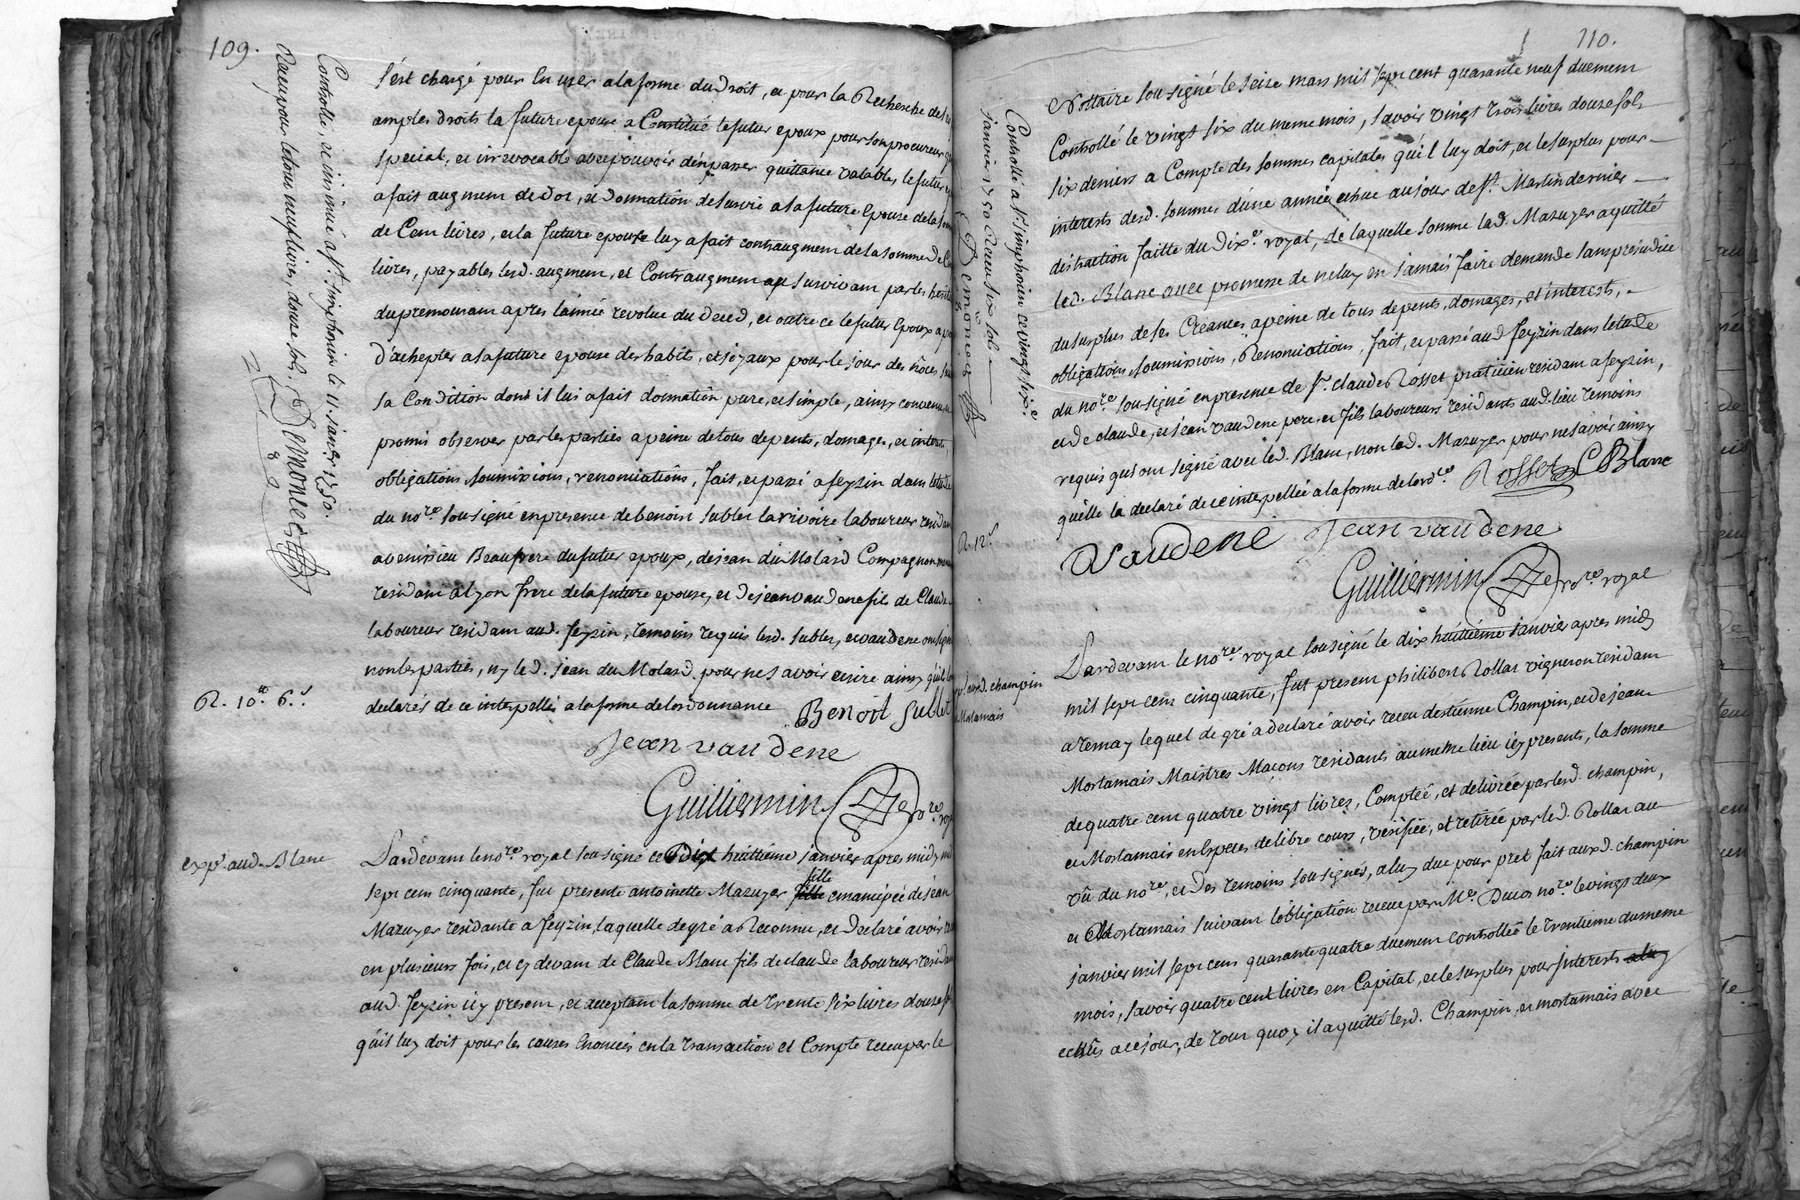 109.
s'est chargé pour en user a la forme du droit, et pour la Recherche de ses
amples droits la future epouse a Constitué le futur epoux pour son procureur
special, et irrevocable avec pouvoir d'en passer quittance valables, le futur
a fait augment de dot, et donnation de survie a la future Epouse de la
de Cent livres, et la future epouse luy a fait contraugment de la somme de
livres, payables lesd. augment, et Contraugment au survivant par les
du premourant apres l'année revolue du deced, et outre ce le futur Epoux a
d'achepter a la future epouse des habits, et joyaux pour le jour des nôces
sa Condition dont il lui a fait donnation pure, et simple, ainsy convenu
promis observer par les parties a peine de tous depents, domages, et
obligations soumissions, renonciations, fait, et passé a feyzin dans
du no.re sousigné en presence de benoist sublet la rivoire laboureur
a venissieu Beaufrere du futur epoux, de jean du Molard Compagnon
residant a Lyon frere de la future epouse, et de jean vaudene fils de Claude
laboureur residant aud. feyzin, temoins requis lesd. sublet, et vaudene ont
non les parties, ny led. jean du Molard pour ne savoir ecrire ainsy qu'ils
declarés de ce interpellés a la forme de l'ordonnance Benoit sublet
Jean vaudene
Guilliermin no.re
R. 10.# 6.s
Controllé, et insinué a s.t simphorien le 21. janvier 1750.
Receu pour le tout neuf livres, douze sols,
Demoncel
exp.é aud. Blanc
Pardevant le no.re royal sousigné ce Dix huitieme janvier apres midy
sept cent cinquante, fut presente antoinette Mazuyer fille emancipée de jean
Mazuyer residante a feyzin, laquelle de gré a Reconnu, et declaré avoir
en plusieurs fois, et cy devant de Claude Blanc fils de claude laboureur
aud. feyzin icy present, et acceptant la somme de trente six livres douze
qu'il luy doit pour les causes Enoncées en la transaction et Compte receu par le
110.
Nottaire sousigné le seize mars mil sept cent quarante neuf duement
Controllé le vingt six du meme mois, savoir vingt trois livres douze sols
six deniers a Compte des sommes capitales qu'il luy doit, et le surplus pour
interests desd. sommes d'une année echue au jour de s.t Martin dernier
distraction faitte du dix.e royal, de laquelle somme lad. Mazuyer a quitté
led. Blanc avec promesse de ne luy en jamais faire demande sans prejudice
du surplus de ses Creances a peine de tous depents, domages, et interests,
obligations soumissions, Renonciations, fait, et passé aud. feyzin dans letude
du no.re sousigné en presence de s.r claude Rosset praticien residant a feyzin,
et de claude, et jean vaudene pere, et fils laboureurs residants aud. lieu temoins
requis qui ont signé avec led. Blanc, non lad. Mazuyer pour ne savoir ainsy
qu'elle la declaré de ce interpellée a la forme de l'ord.ce Rosset C Blanc
Vaudene Jean vaudene
Guilliermin no.re royal
Controllé a s.t simphorien ce vingt
janvier 1750 Receu six sols
Demoncel
R. 12.s
Pardevant le no.re royal sousigné le dix huittieme janvier apres midy
mil sept cent cinquante, fut present philibert Rollat vigneron residant
a ternay lequel de gré a declaré avoir receu d'estienne Champin, et de jean
Mortamais Maistres Maçons residants au meme lieu icy presents, la somme
de quatre cent quatre vingt livres, Comptée, et delivrée par lesd. champin,
et Mortamais en Especes de libre cours, verifiée, et retirée par led. Rollat au
vû du no.re, et des temoins sousignés, a luy due pour pret fait auxd. champin
et Mortamais suivant l'obligation receue par M.e Ducos no.re le vingt deux
janvier mil sept cent quarante quatre duement controllée le trentieme du meme
mois, savoir quatre cent livres en Capital, et le surplus pour interests
echûs a ce jour, de tout quoy il a quitté lesd. Champin, et mortamais avec
lesd. champin
Mortamais